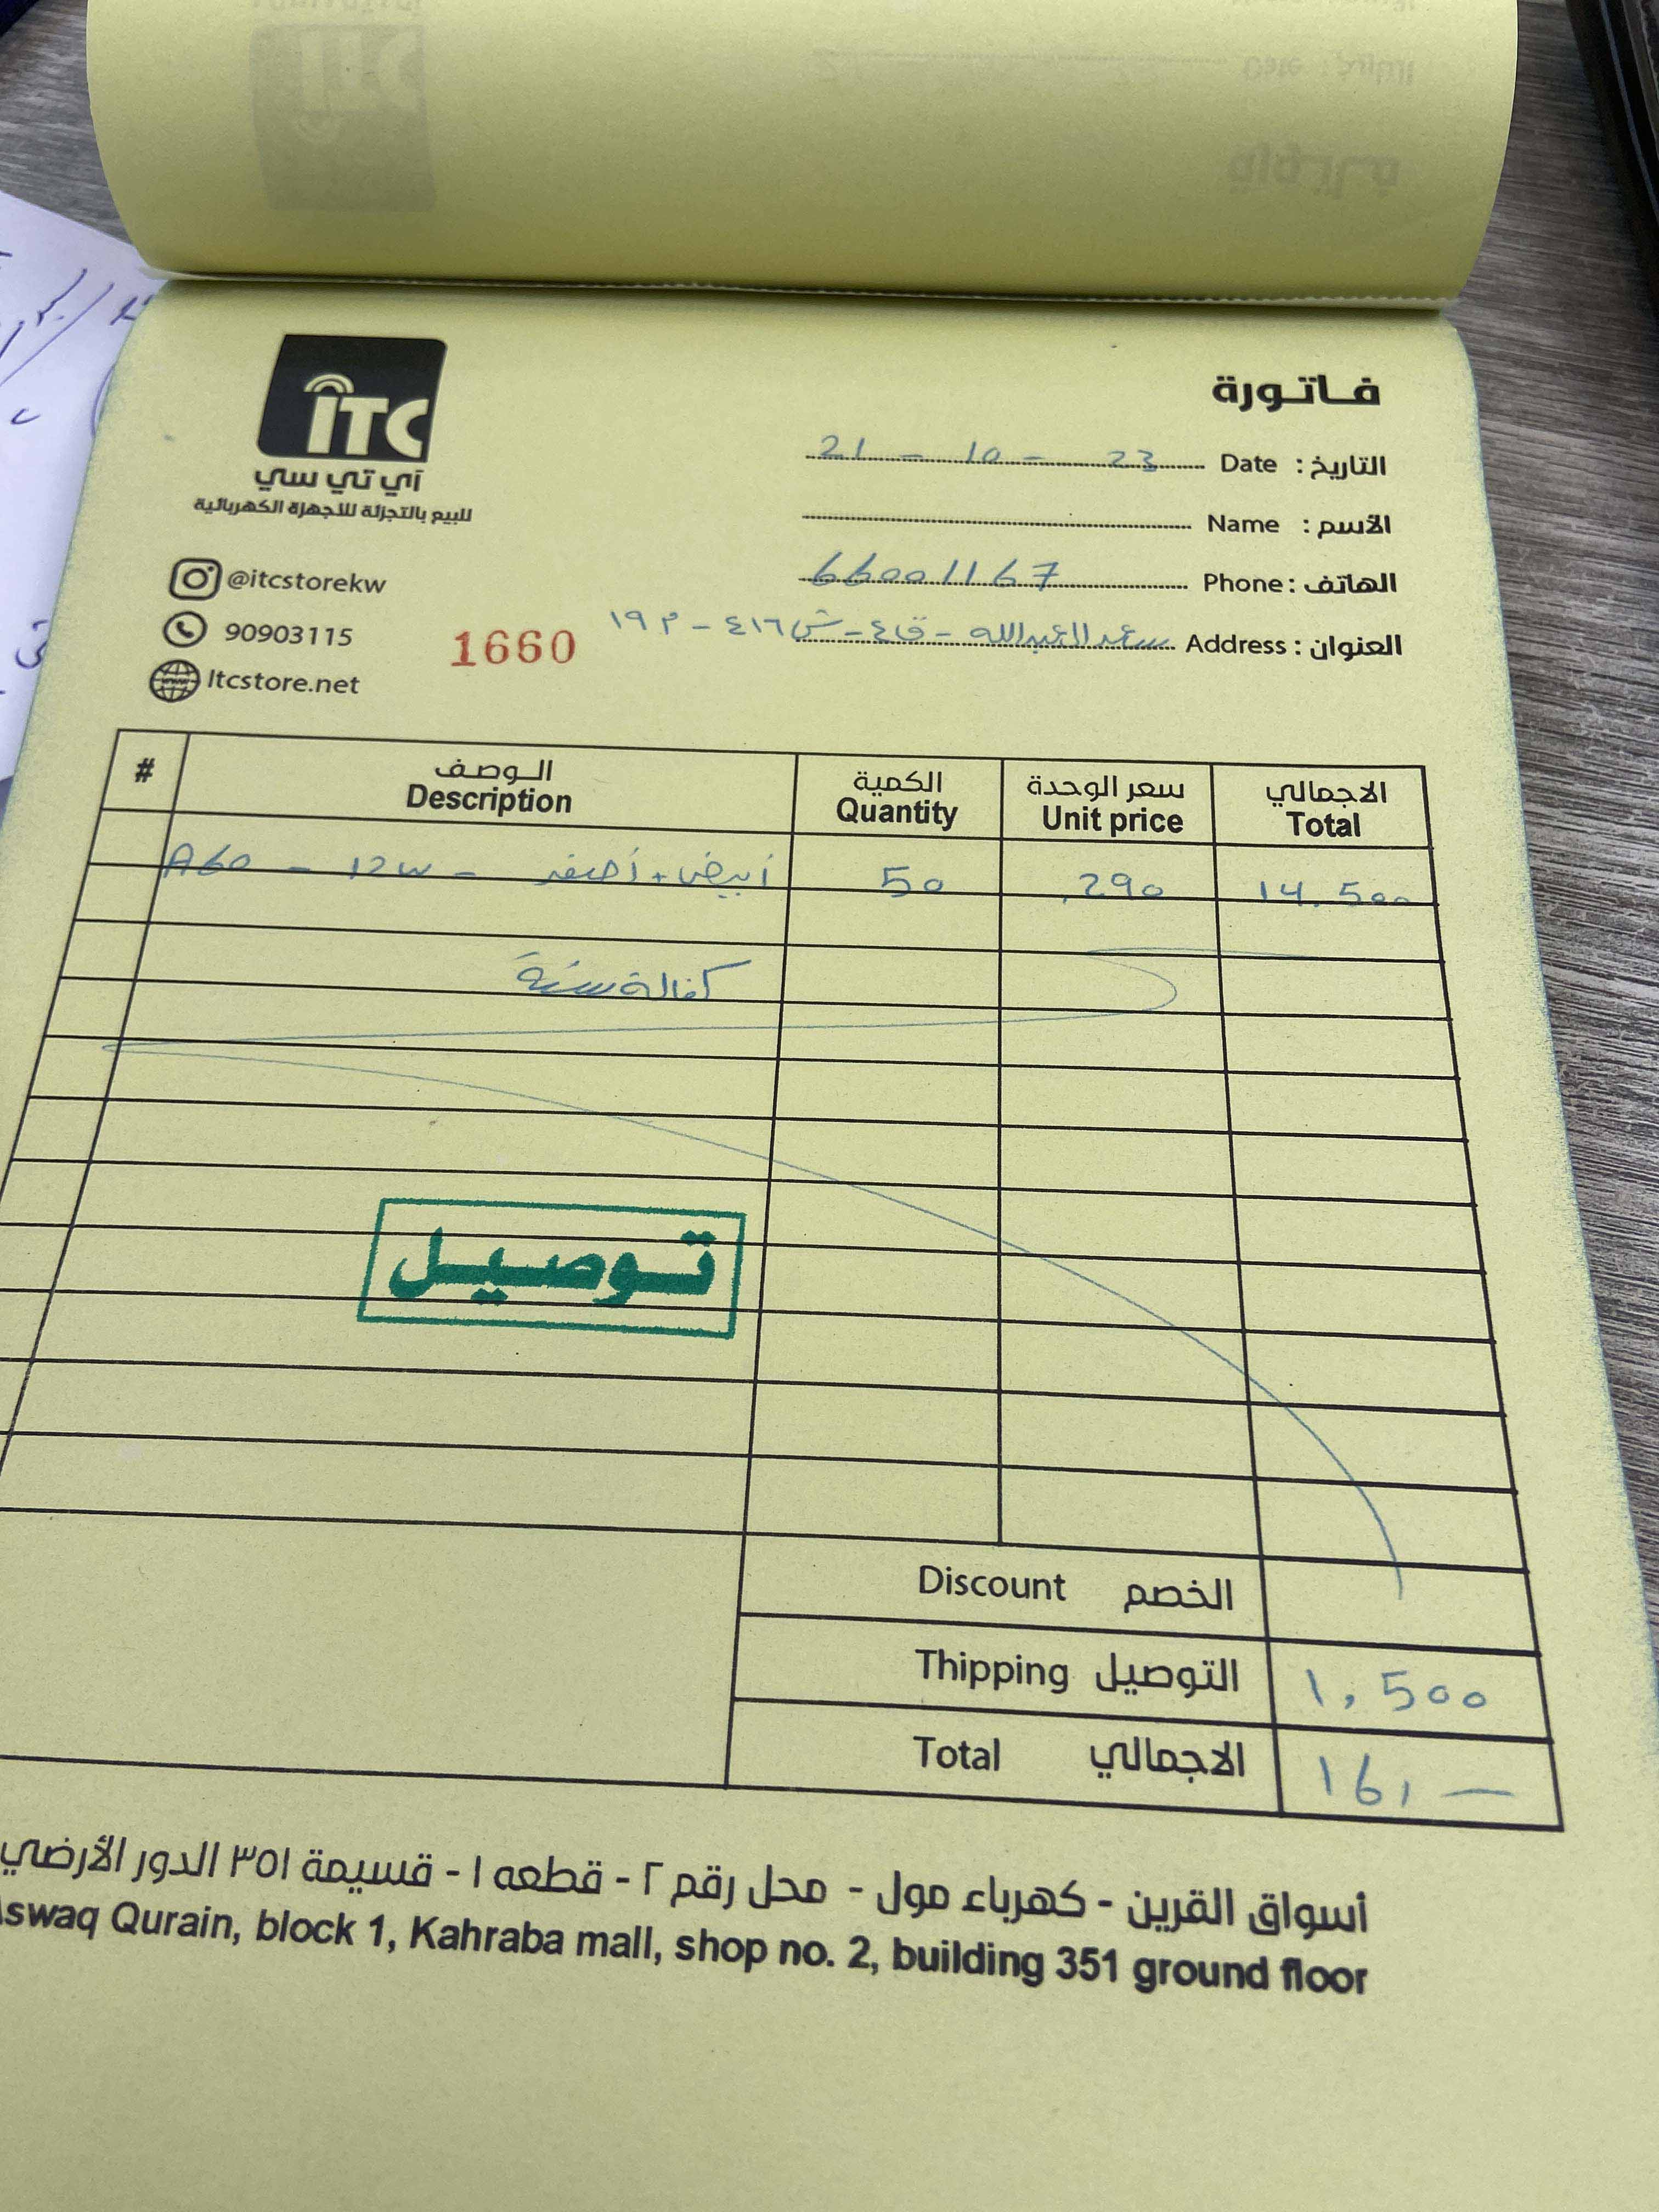 ITC
آي تي سي
للبيع بالتجزئة للأجهزة الكهربائية
@itcstorekw
90903115
Itcstore.net
1660
فاتورة
التاريخ : Date 21 - 10 - 23
الأسم : Name
الهاتف : Phone 66001167
العنوان : Address سعد العبدالله - ق٤ - ش٤١٦ - م١٩
# الوصف الكمية سعر الوحدة الاجمالي
Description Quantity Unit price Total
A60 - 12w - أبيض + أصفر 50 .290 14.500
كفالة سنة
توصيل
Discount الخصم
Thipping التوصيل 1,500
Total الاجمالي 16,—
أسواق القرين - كهرباء مول - محل رقم ٢ - قطعه ١ - قسيمة ٣٥١ الدور الأرضي
Aswaq Qurain, block 1, Kahraba mall, shop no. 2, building 351 ground floor